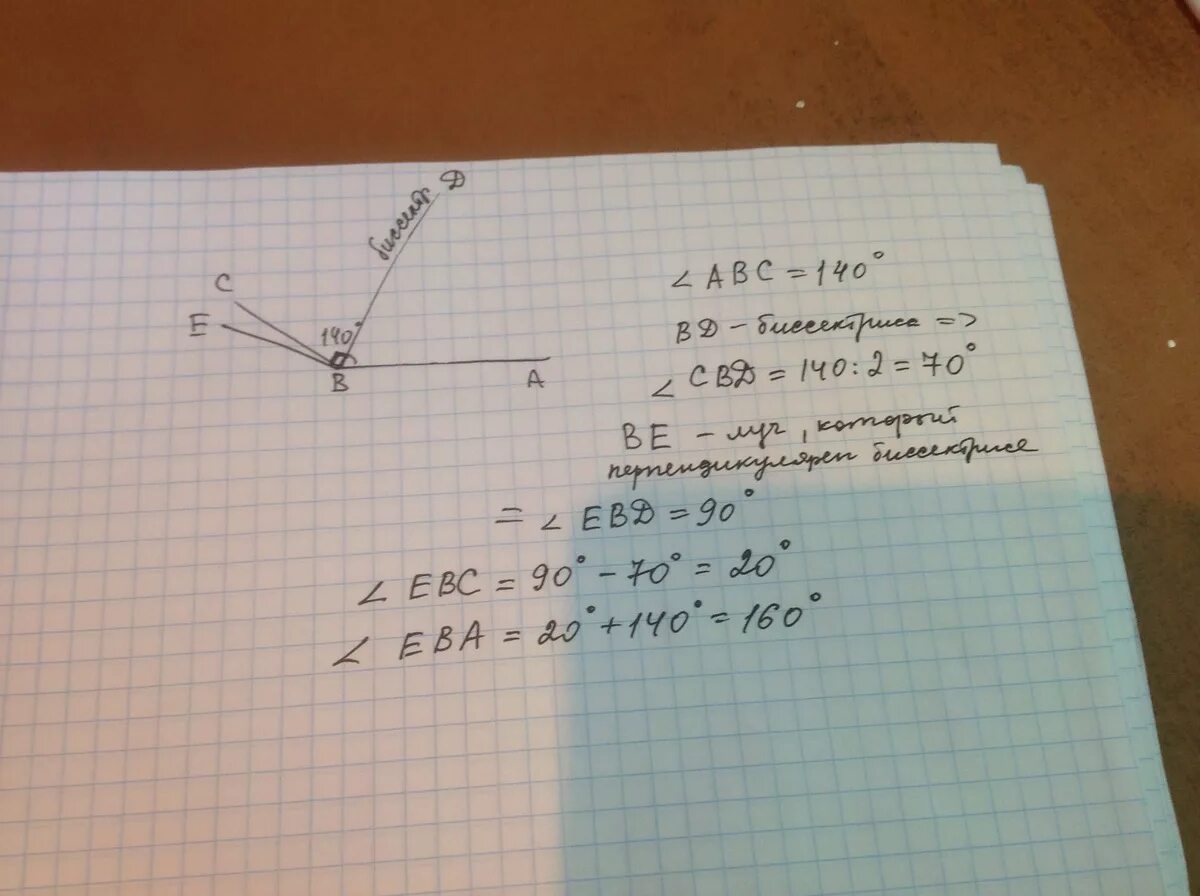 биссектр Д
C
E
140°
B
A
∠ ABC = 140°
BД - биссектриса =>
∠ CBД = 140 : 2 = 70°
BE - луч, который
перпендикулярен биссектрисе
= ∠ EBД = 90°
∠ EBC = 90° - 70° = 20°
∠ EBA = 20° + 140° = 160°